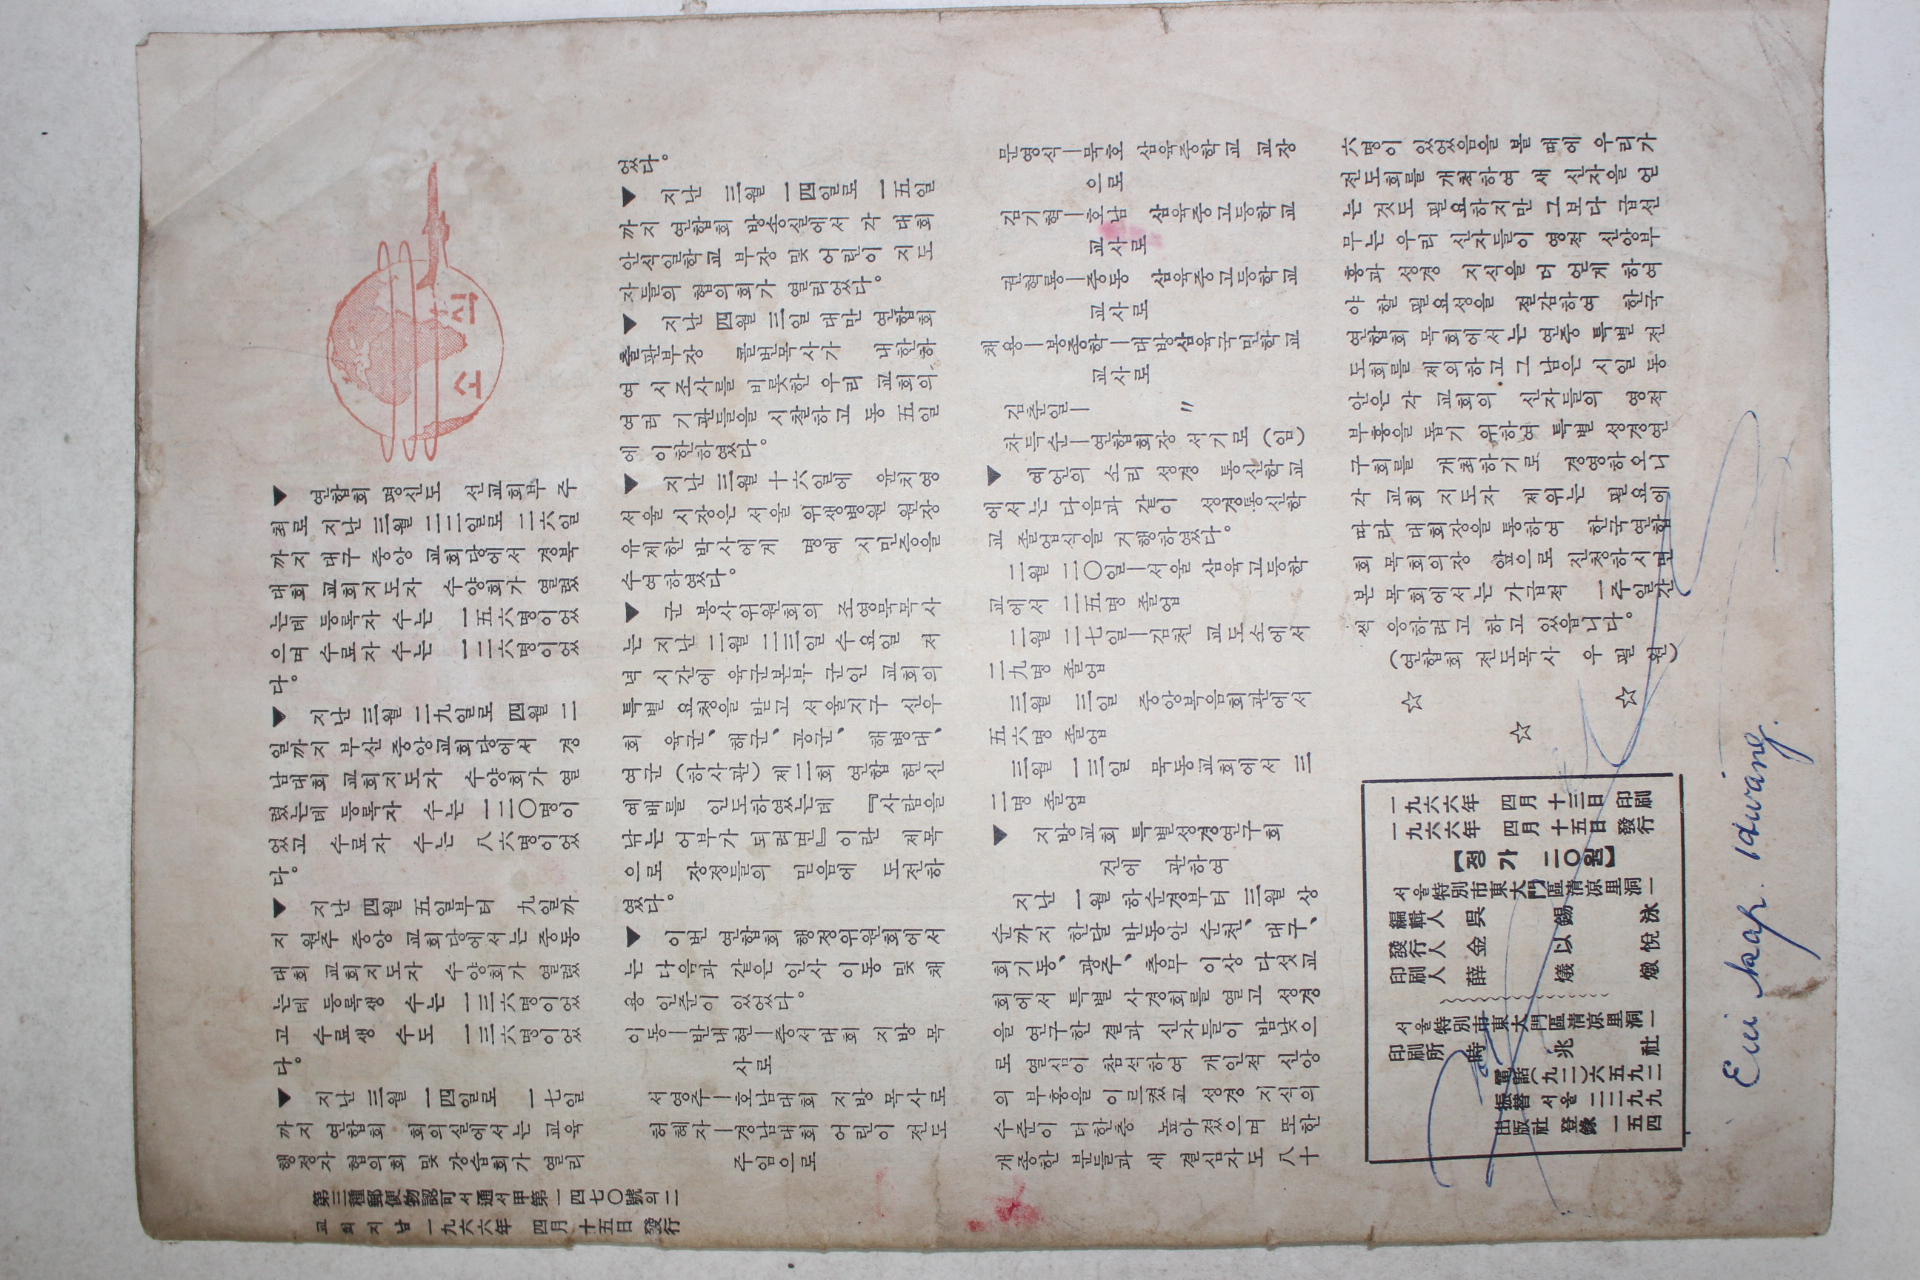 소식
▼ 연합회 평신도 선교회부 주
최로 지난 三월 二二일로 二六일
까지 대구 중앙 교회당에서 경북
대회 교회지도자 수양회가 열렸
는데 등록자 수는 一五六명이었
으며 수료자 수는 一二六명이었
다。
▼ 지난 三월 二九일로 四월 二
일까지 부산 중앙교회당에서 경
남대회 교회지도자 수양회가 열
렸는데 등록자 수는 一二〇명이
었고 수료자 수는 八六명이었
다。
▼ 지난 四월 五일부터 九일까
지 원주 중앙 교회당에서는 중동
대회 교회지도자 수양회가 열렸
는데 등록생 수는 一三六명이었
고 수료생 수도 一三六명이었
다。
▼ 지난 三월 一四일로 一七일
까지 연합회 회의실에서는 교육
행정자 협의회 및 강습회가 열리
었다。
▼ 지난 三월 一四일로 一五일
까지 연합회 방송실에서 각 대회
안식일학교 부장 및 어린이 지도
자들의 협의회가 열리었다。
▼ 지난 四월 三일 대만 연합회
출판부장 콜번목사가 내한하
여 시조사를 비롯한 우리 교회의
여러 기관들을 시찰하고 동 五일
에 이한하였다。
▼ 지난 三월 十六일에 윤치영
서울 시장은 서울 위생병원 원장
유제한 박사에게 명예 시민증을
수여하였다。
▼ 군 봉사위원회의 조영묵목사
는 지난 二월 二三일 수요일 저
녁 시간에 육군본부 군인 교회의
특별 요청을 받고 서울지구 신우
회 육군、해군、공군、해병대、
여군 (하사관) 제二회 연합 헌신
예배를 인도하였는데 『사람을
낚는 어부가 되려면』이란 제목
으로 장정들의 믿음에 도전하
였다。
▼ 이번 연합회 행정위원회에서
는 다음과 같은 인사 이동 및 채
용 인준이 있었다。
이동―반내현―중서대회 지방 목
사로
서영주―호남대회 지방 목사로
허혜자―경남대회 어린이 전도
주임으로
문영석―묵호 삼육중학교 교장
으로
김기혁―호남 삼육중고등학교
교사로
권혁룡―중동 삼육중고등학교
교사로
채용―봉중학―대방삼육국민학교
교사로
김춘일― 〃
차득순―연합회장 서기로 (임)
▼ 예언의 소리 성경 통신학교
에서는 다음과 같이 성경통신학
교 졸업식을 거행하였다。
二월 二〇일―서울 삼육고등학
교에서 二五명 졸업
二월 二七일―김천 교도소에서
二九명 졸업
三월 三일 중앙복음회관에서
五六명 졸업
三월 一三일 묵동교회에서 三
二명 졸업
▼ 지방교회 특별성경연구회
건에 관하여
지난 一월 하순경부터 三월 상
순까지 한달 반동안 순천、대구、
회기동、광주、충무 이상 다섯 교
회에서 특별 사경회를 열고 성경
을 연구한 결과 신자들이 밤낮으
로 열심이 참석하여 개인적 신앙
의 부흥을 이르켰고 성경 지식의
수준이 더한층 높아졌으며 또한
개종한 분들과 새 결심자도 八十
六명이 있었음을 볼 때에 우리가
전도회를 개최하여 새 신자을 얻
는 것도 필요하지만 그보다 급선
무는 우리 신자들이 영적 신앙부
흥과 성경 지식을 더 얻게 하여
야 할 필요성을 절감하여 한국
연합회 목회에서는 연중 특별 전
도회를 제외하고 그 남은 시일 동
안은 각 교회의 신자들의 영적
부흥을 돕기 위하여 특별 성경연
구회를 개최하기로 경영하오니
각 교회 지도자 제위는 필요에
따라 대회장을 통하여 한국연합
회 목회의장 앞으로 신청하시면
본 목회에서는 가급적 一주일간
씩 응하려고 하고 있읍니다。
(연합회 전도목사 우 필 원)
☆ ☆ ☆
一九六六年 四月 十三日 印刷
一九六六年 四月 十五日 發行
【정 가 二〇원】
서울特別市東大門區淸凉里洞一
編輯人 吳錫泳
發行人 金以悅
印刷人 薛燨燉
서울特別市東大門區淸凉里洞一
印刷所 時兆社
電話(九二)六五九二
振替 서울 二二九九
出版社 登錄 一五四
Eui kap. Hwang.
第三種郵便物認可서通서甲第一四七〇號의二
교회지남 一九六六年 四月 十五日 發行